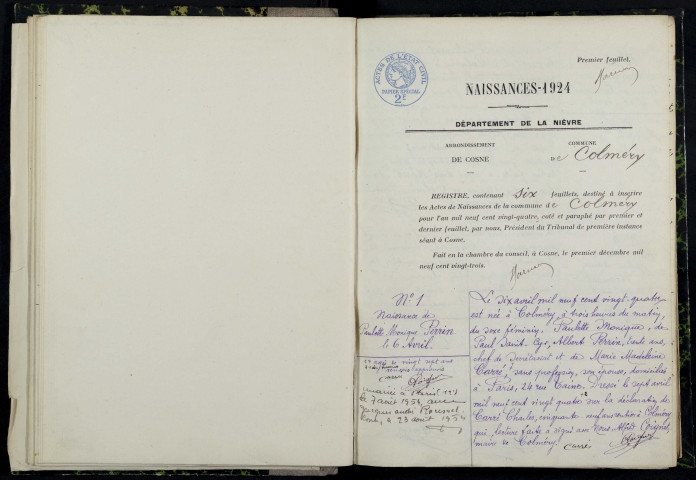 Premier feuillet.
ACTES DE L'ETAT CIVIL
PAPIER SPÉCIAL
2F
NAISSANCES-1924
DÉPARTEMENT DE LA NIÈVRE
ARRONDISSEMENT
DE COSNE
COMMUNE
de Colméry
REGISTRE, contenant six feuillets, destiné à inscrire
les Actes de Naissances de la commune de Colméry
pour l'an mil neuf cent vingt-quatre, coté et paraphé par premier et
dernier feuillet, par nous, Président du Tribunal de première instance
séant à Cosne.
Fait en la chambre du conseil, à Cosne, le premier décembre mil
neuf cent vingt-trois.
N° 1
Naissance de
Paulette Monique Perrin
le 6 Avril.
mariée à Paris
le 7 août 1954 avec
Jacques André
août 1954
Le six avril mil neuf cent vingt-quatre
est née à Colméry, à trois heures du matin,
du sexe féminin, Paulette Monique, de
Paul Albert Perrin, trente ans,
chef de et de Marie Madeleine
Carré, sans profession, son épouse, domiciliés
à Paris, 24 rue Dressé le sept avril
mil neuf cent vingt quatre sur la déclaration de
Carré Charles, cinquante ans, à Colméry
qui, lecture faite a signé avec Nous
maire de Colméry.
Carré